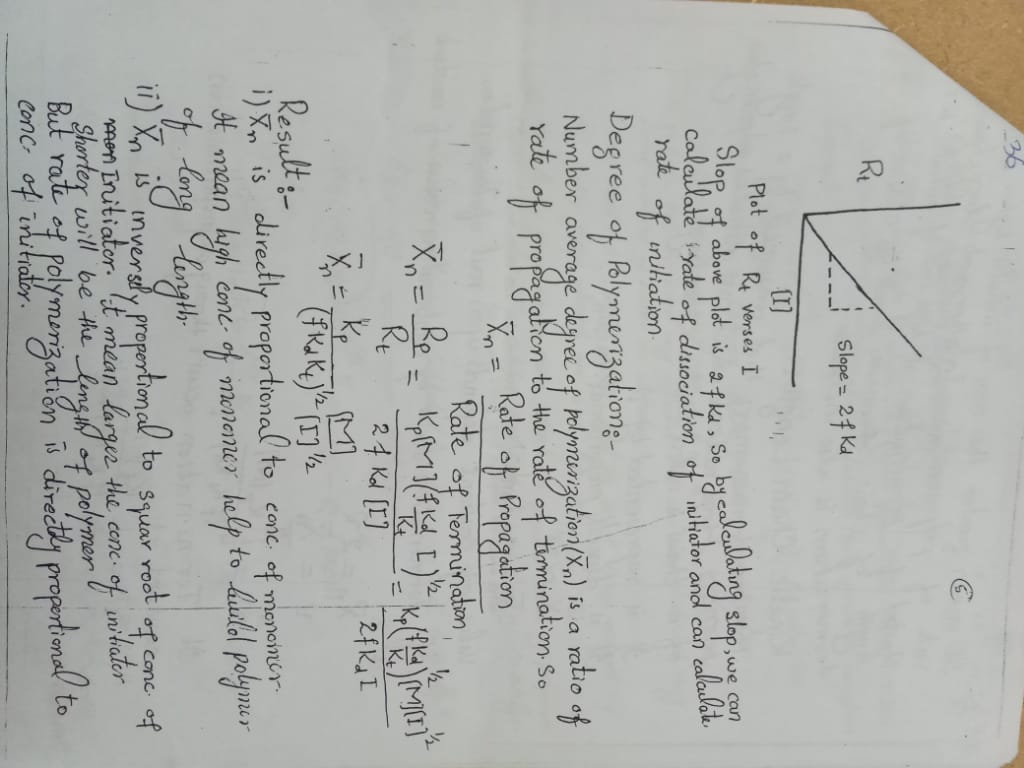 36
6
Rt
Slope = 2fKd
[I]
Plot of Rt verses I
Slop of above plot is 2fKd, So by calculating slop, we can
calculate rate of dissociation of initiator and can calculate
rate of initiation.
Degree of Polymerization:-
Number average degree of polymerization (X̄n) is a ratio of
rate of propagation to the rate of termination. So
X̄n = Rate of Propagation / Rate of Termination
X̄n = Rp / Rt = Kp[M](fKd/Kt I)^1/2 / 2fKd[I] = Kp(fKd/Kt)^1/2 [M][I]^1/2 / 2fKd I
X̄n = Kp [M] / (fKdKt)^1/2 [I]^1/2
Result:-
i) X̄n is directly proportional to conc. of monomer.
It mean high conc. of monomer help to build polymer
of long length.
ii) X̄n is inversely proportional to square root of conc. of
Initiator. it mean larger the conc. of initiator
Shorter will be the length of polymer
But rate of polymerization is directly proportional to
conc. of initiator.